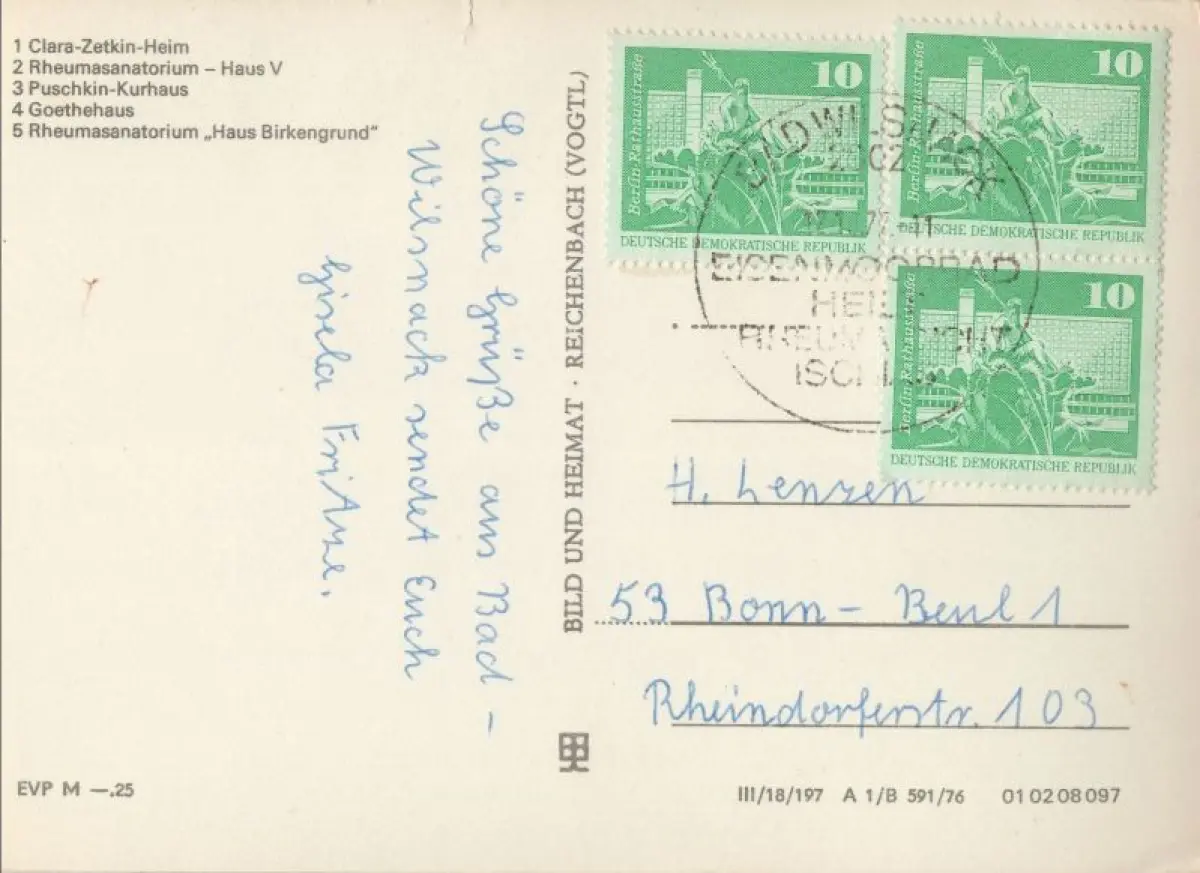 1 Clara-Zetkin-Heim
2 Rheumasanatorium – Haus V
3 Puschkin-Kurhaus
4 Goethehaus
5 Rheumasanatorium „Haus Birkengrund“
Schöne Grüße aus Bad-
Wilsnack sendet Euch
Gisela Fritze.
EVP M —,25
BILD UND HEIMAT · REICHENBACH (VOGTL)
10
Berlin Rathausstraße
DEUTSCHE DEMOKRATISCHE REPUBLIK
10
Berlin Rathausstraße
DEUTSCHE DEMOKRATISCHE REPUBLIK
10
Berlin Rathausstraße
DEUTSCHE DEMOKRATISCHE REPUBLIK
BAD WILSNACK
EISENMOORBAD
HEILT
H. Lenzen
53 Bonn – Beul 1
Rheindorferstr. 103
III/18/197 A 1/B 591/76 01 02 08 097